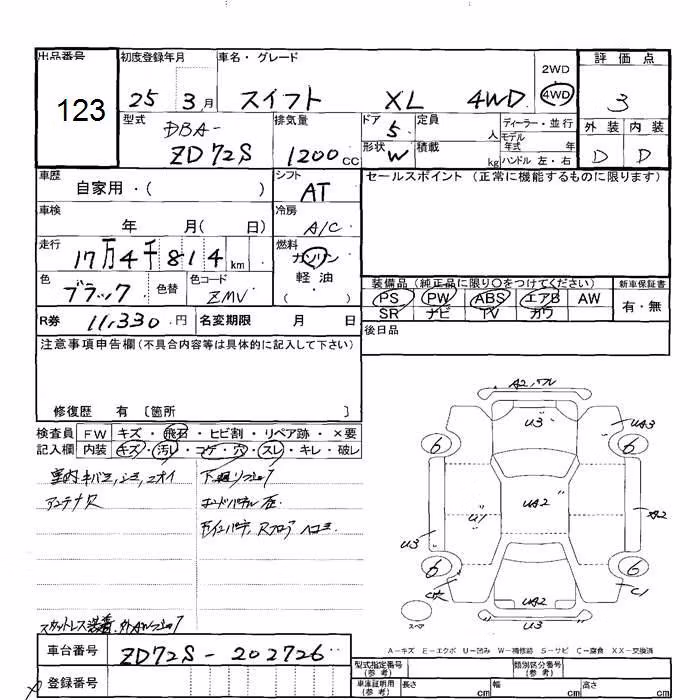 出品番号 初度登録年月 車名・グレード 評価点
123 25 3月 スイフト XL 4WD 2WD 4WD 3
型式 DBA- ZD72S 排気量 1200cc ドア 5 定員 人 ディーラー・並行 外装 内装
形状 W 積載 kg モデル年式 年 ハンドル 左・右 D D
車歴 自家用・( ) シフト AT セールスポイント (正常に機能するものに限ります)
車検 年 月( 日) 冷房 A/C
走行 17万4千814km 燃料 ガソリン 軽油 ( )
色 ブラック 色替 色コード ZMV
装備品 (純正品に限り○をつけてください) 新車保証書
PS PW ABS エアB AW 有・無
SR ナビ TV カワ
R券 11,330円 名変期限 月 日 後日品
注意事項申告欄(不具合内容等は具体的に記入して下さい)
修復歴 有 〔箇所 〕
検査員 FW キズ・飛石・ヒビ割・リペア跡・×要
記入欄 内装 キズ・汚レ・コゲ・穴・スレ・キレ・破レ
室内キバミ,シミ,ニオイ
アンテナ欠
A2, ワレ
U3
UA3
6 6
U1 UA2 A2
U3
6 6
C1
UA2
U3
スペア
A-キズ E-エクボ U-凹み W-補修跡 S-サビ C-腐食 XX-交換済
車台番号 ZD72S-202726
登録番号
型式指定番号(参考) 類別区分番号(参考)
車庫証明用(参考) 長さ cm 幅 cm 高さ cm